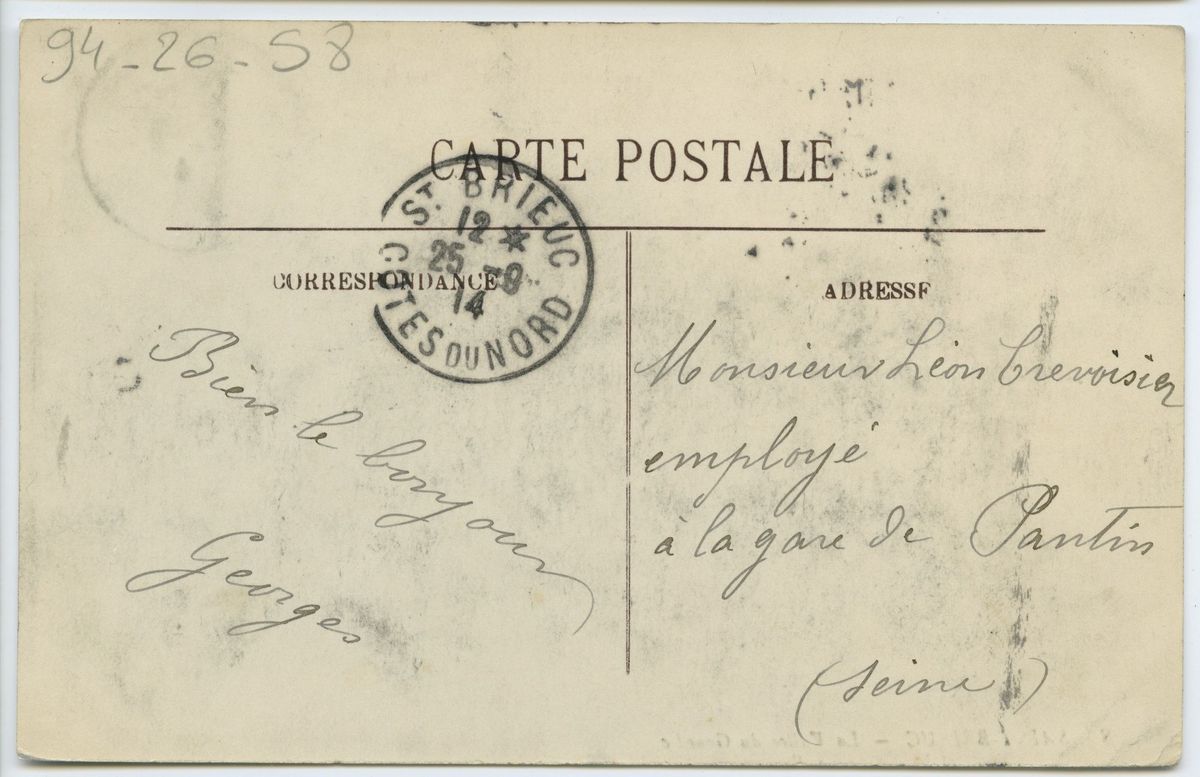 94-26-58
CARTE POSTALE
ST BRIEUC
12 *
25 -9
14
COTES DU NORD
CORRESPONDANCE
ADRESSE
Bien le bonjour
Georges
Monsieur Léon Crevoisier
employé
à la gare de Pantin
(Seine)